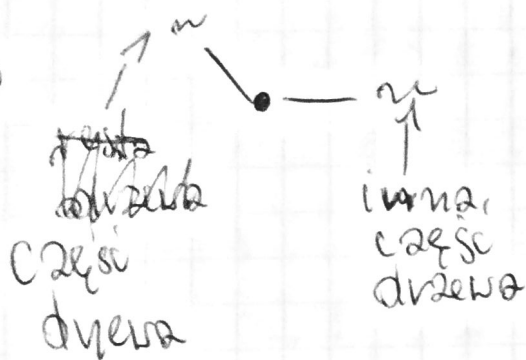 część
drzewa
inna
część
drzewa